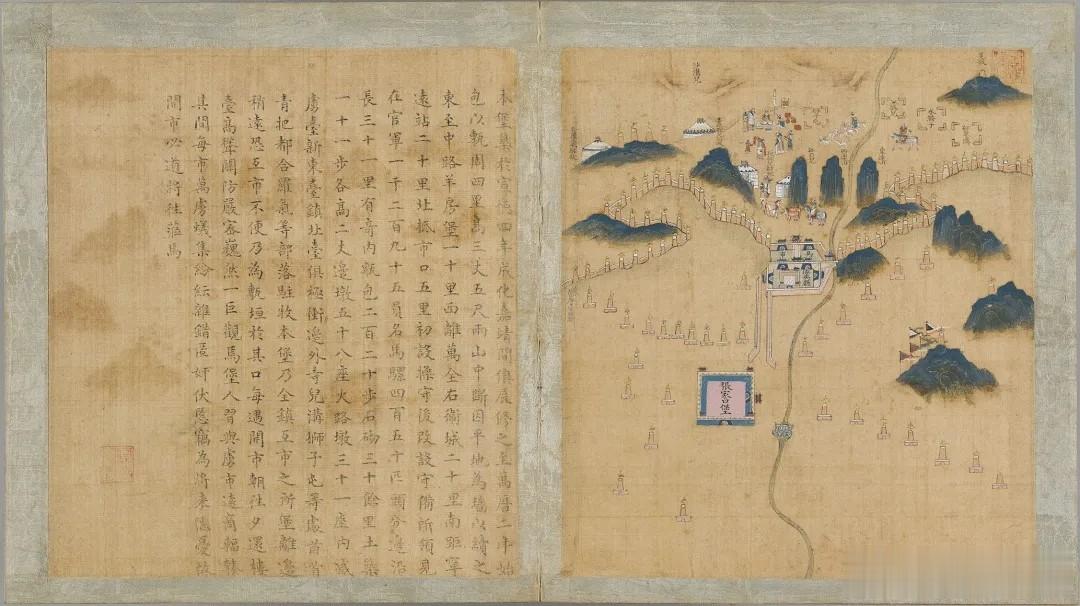 本堡築於宣德四年成化嘉靖間俱展修之至萬曆二年始
包以甎周四里高三丈五尺兩山中斷因平地為墻以續之
東至中路羊房堡一十里西離萬全右衛城二十里南距寧
遠站二十里北抵市口五里初設操守後改設守備所領見
在官軍一千二百九十五員名馬騾四百五十匹頭分邊沿
長三十一里有奇內甎包二百二十步石砌三十餘里土築
一十一步各高二丈邊墩五十八座火路墩三十一座內滅
虜臺新東臺鎮北臺俱極衝邊外寺兒溝獅子屯等處酋首
青把都合羅氣等部落駐牧本堡乃全鎮互市之所堡離邊
稍遠恐互市不便乃為甎垣於其口每遇開市朝往夕還樓
臺高聳關防嚴密巍然一巨觀焉堡人習與虜市遠商輻輳
其間每市萬虜蟻集紛紜雜錯匿奸伏慝竊為將來隱憂故
開市必道將往蒞焉
張家口堡